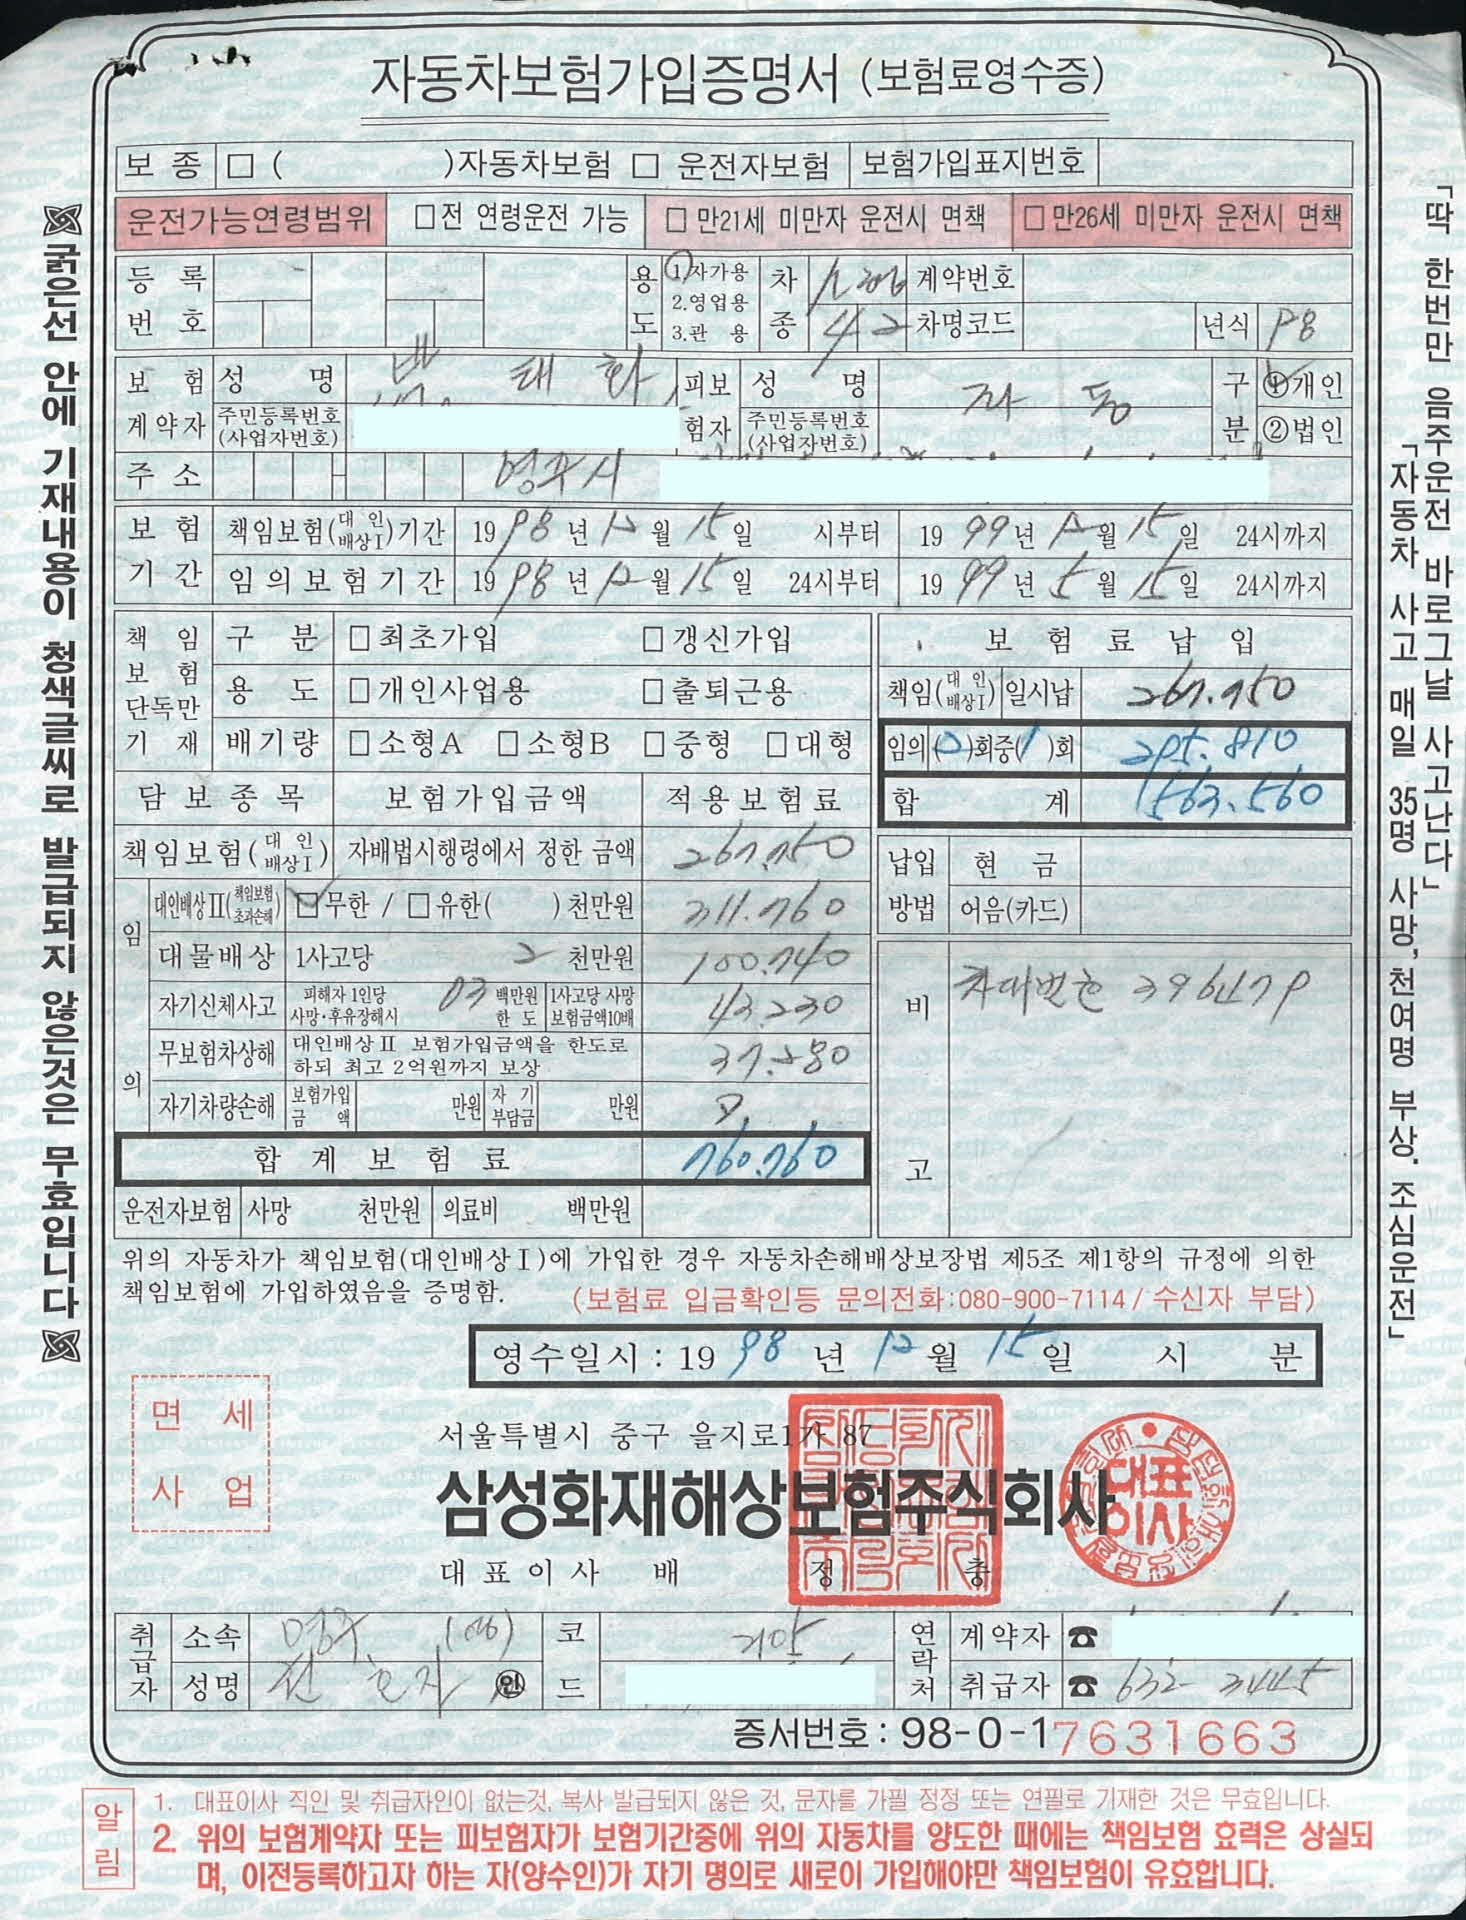 자동차보험가입증명서 (보험료영수증)
보 종 □ ( )자동차보험 □ 운전자보험 보험가입표지번호
운전가능연령범위 □전 연령운전 가능 □ 만21세 미만자 운전시 면책 □ 만26세 미만자 운전시 면책
등 록 번 호 용 도 1.자가용 2.영업용 3.관 용 차 종 42 계약번호
차명코드 년식 98
보 험 계약자 성 명 태 화 피보험자 성 명 자 동 구 분 ①개인 ②법인
주민등록번호 (사업자번호) 주민등록번호 (사업자번호)
주 소 영주시
보 험 기 간 책임보험(대 인 배상Ⅰ)기간 19 98 년 12 월 15 일 시부터 19 99 년 12 월 15 일 24시까지
임의보험기간 19 98 년 12 월 15 일 24시부터 19 99 년 5 월 15 일 24시까지
책 임 보 험 단독만 기 재 구 분 □최초가입 □갱신가입
용 도 □개인사업용 □출퇴근용
배기량 □소형A □소형B □중형 □대형
보 험 료 납 입
책임(대 인 배상Ⅰ) 일시납 267.750
임의(2)회중(1)회 295.810
합 계 563.560
납입 방법 현 금
어음(카드)
비 고 차대번호
담 보 종 목 보험가입금액 적용보험료
책임보험(대 인 배상Ⅰ) 자배법시행령에서 정한 금액 267.750
임 의 대인배상Ⅱ(책임보험 초과손해) □무한 / □유한( )천만원 311.760
대물배상 1사고당 2 천만원 100.740
자기신체사고 피해자 1인당 사망·후유장해시 03 백만원 한 도 1사고당 사망 보험금액10배 43.230
무보험차상해 대인배상Ⅱ 보험가입금액을 한도로 하되 최고 2억원까지 보상 37.280
자기차량손해 보험가입 금 액 만원 자 기 부담금 만원
합 계 보 험 료 760.760
운전자보험 사망 천만원 의료비 백만원
위의 자동차가 책임보험(대인배상Ⅰ)에 가입한 경우 자동차손해배상보장법 제5조 제1항의 규정에 의한
책임보험에 가입하였음을 증명함.
(보험료 입금확인등 문의전화:080-900-7114/수신자 부담)
영수일시 : 19 98 년 12 월 15 일 시 분
면 세
사 업
서울특별시 중구 을지로1가 87
삼성화재해상보험주식회사
대표이사 배 정 충
대표이사
취급자 소속 영주 코 드 연락처 계약자 ☎
성명 ㊞ 취급자 ☎ 632-3445
증서번호 : 98-0-17631663
알림
1. 대표이사 직인 및 취급자인이 없는것, 복사 발급되지 않은 것, 문자를 가필 정정 또는 연필로 기재한 것은 무효입니다.
2. 위의 보험계약자 또는 피보험자가 보험기간중에 위의 자동차를 양도한 때에는 책임보험 효력은 상실되
며, 이전등록하고자 하는 자(양수인)가 자기 명의로 새로이 가입해야만 책임보험이 유효합니다.
굵은선 안에 기재내용이 청색글씨로 발급되지 않은것은 무효입니다
「딱 한번만 음주운전 바로그날 사고난다」
「자동차 사고 매일 35명 사망, 천여명 부상. 조심운전」